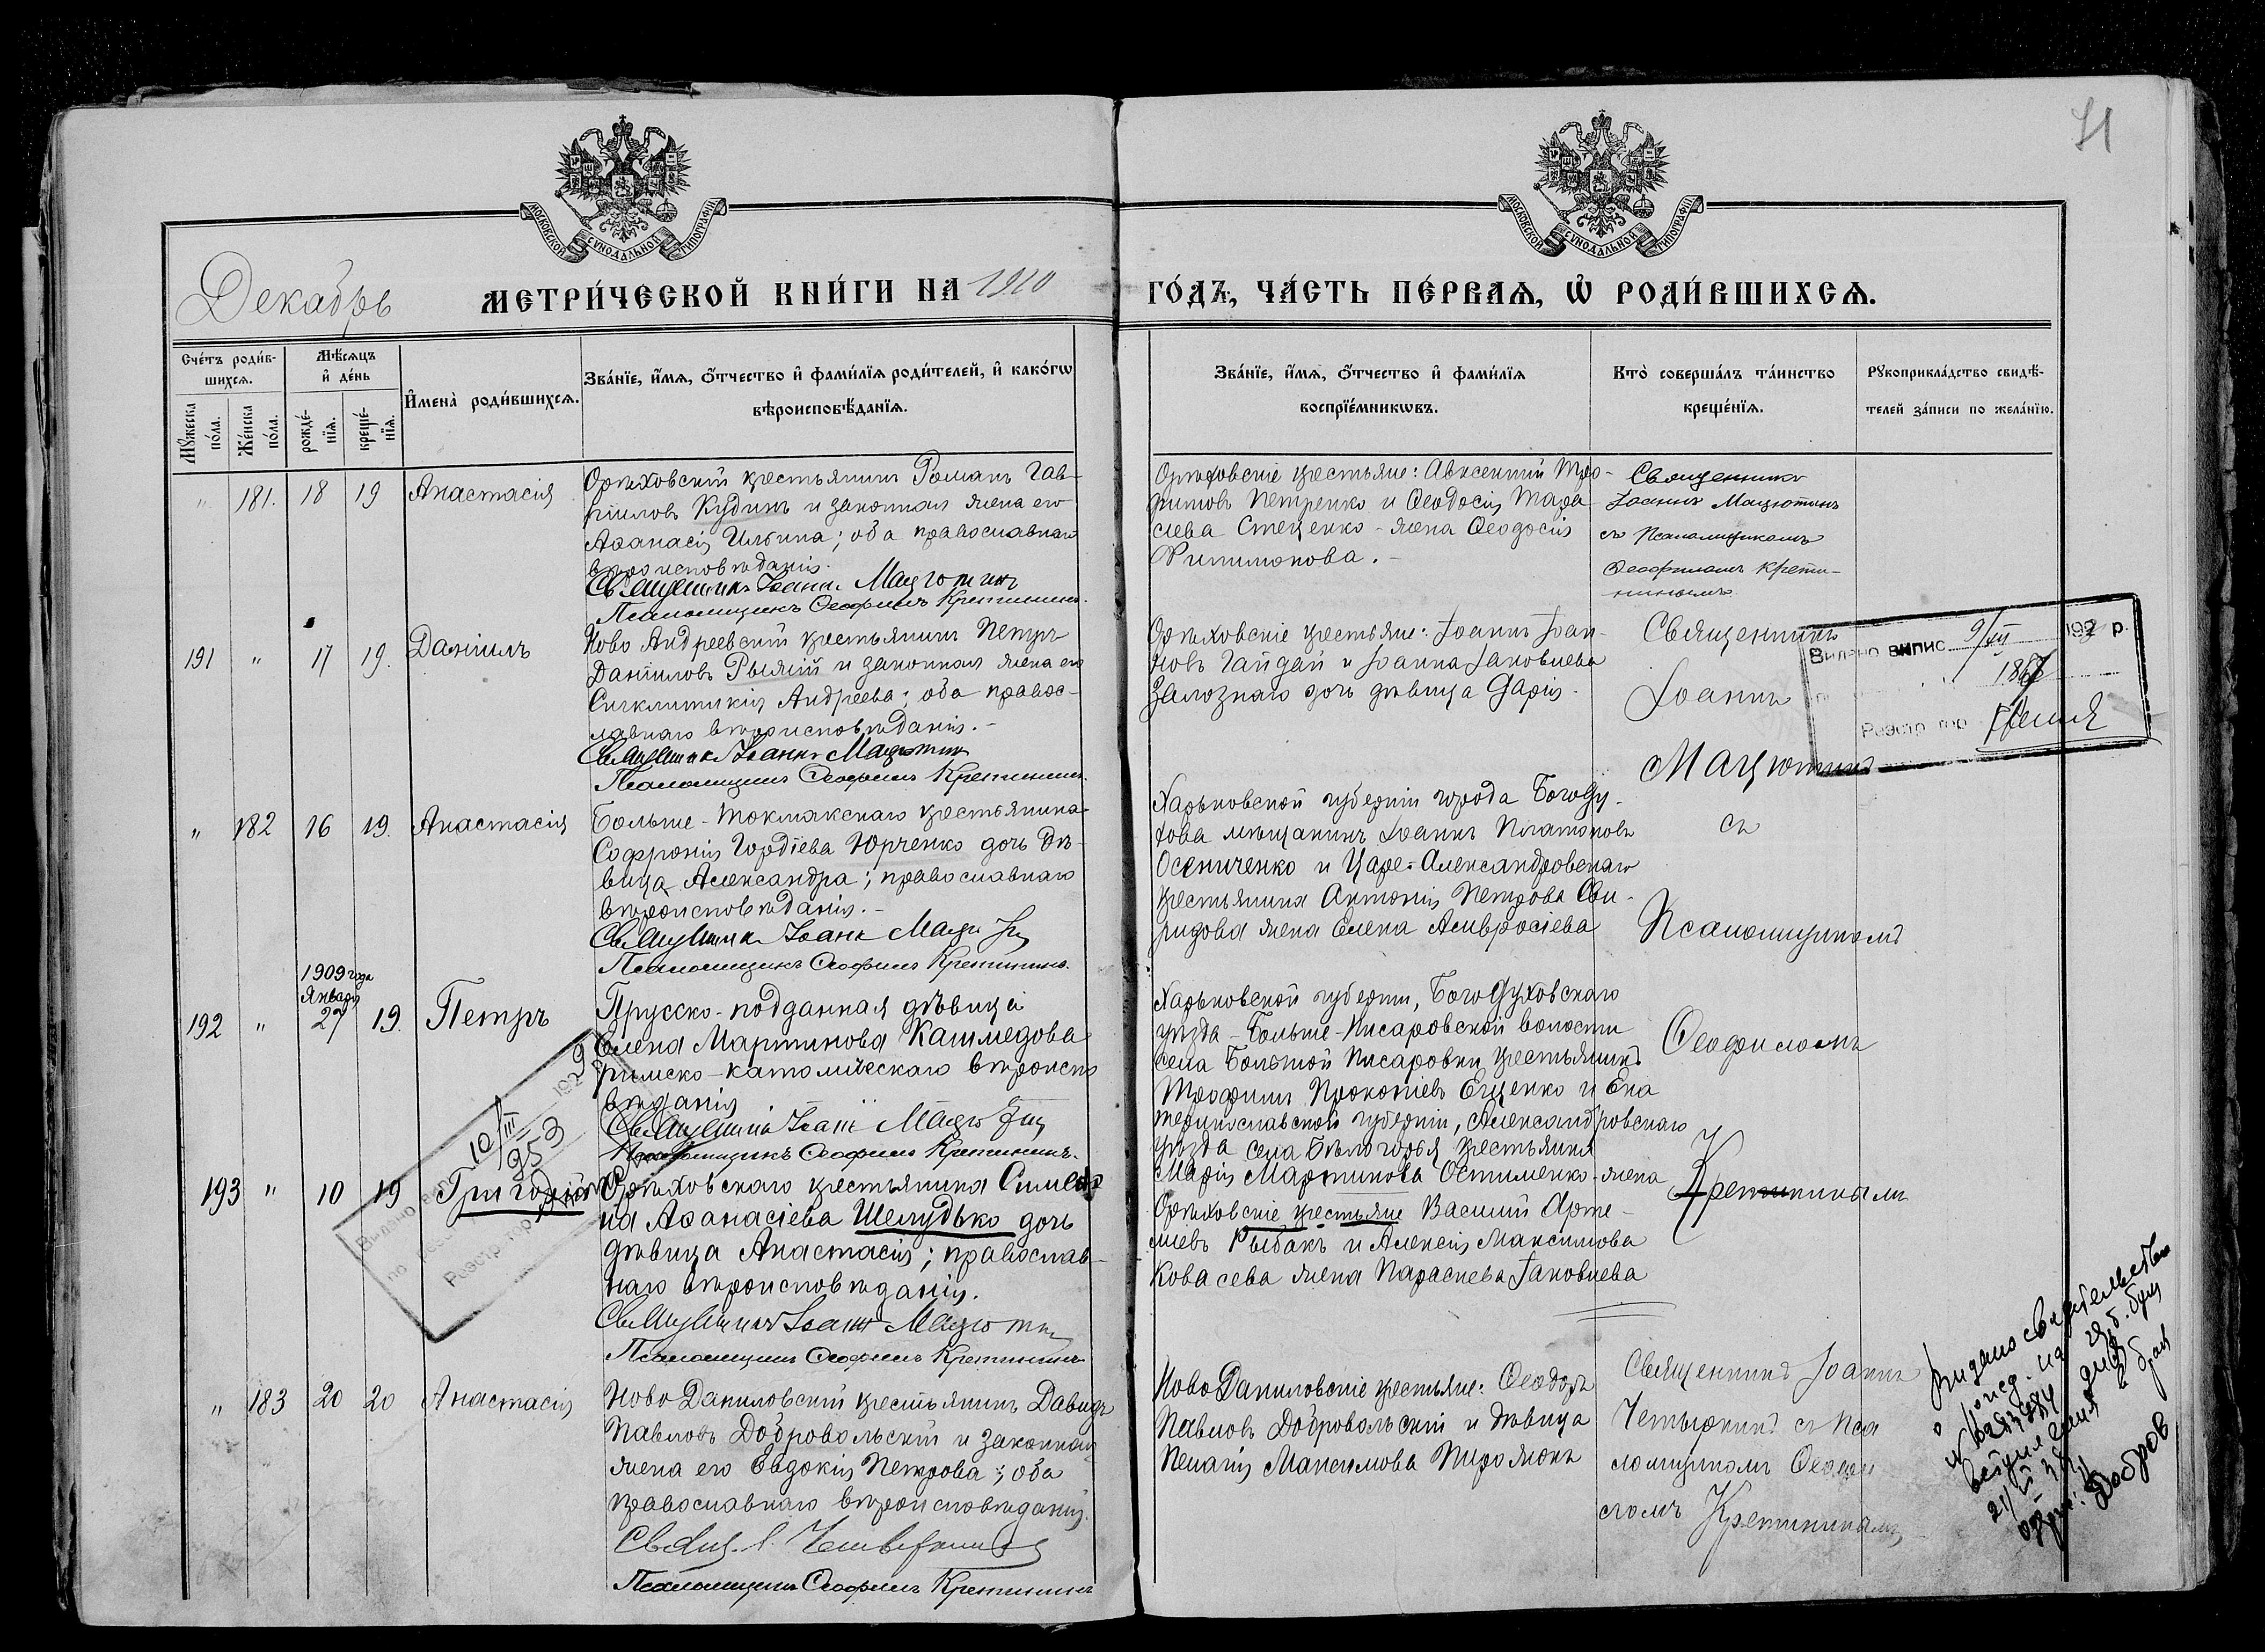 71
МОСКОВСКОЙ СУНОДАЛЬНОЙ ТИПОГРАФІИ
МОСКОВСКОЙ СУНОДАЛЬНОЙ ТИПОГРАФІИ
Декабрь
МЕТРИ́ЧЕСКОЙ КНИ́ГИ НА 1910
ГО́ДЪ, ЧА́СТЬ ПЕ́РВАѦ, Ѡ҆ РОДИ́ВШИХСѦ.
Счѐтъ роди́в-
шихсѧ.
Мꙋ́жеска по́ла.
Же́нска по́ла.
Мѣ́сѧцъ
и҆ де́нь
рожде́-
нїѧ.
креще́-
нїѧ.
И҆мена̀ роди́вшихсѧ.
Зва́нїе, и҆́мѧ, ѻ҆́тчество и҆ фами́лїѧ роди́телей, и҆ како́гѡ
вѣроисповѣ́данїѧ.
Зва́нїе, и҆́мѧ, ѻ҆́тчество и҆ фами́лїѧ
воспрїе́мникѡвъ.
Кто̀ соверша́лъ та́инство
креще́нїѧ.
Рꙋкоприкла́дство свидѣ́-
телей за́писи по жела́нїю.
" 181. 18 19 Анастасія
Орѣховскій крестьянинъ Романъ Гав-
ріиловъ Кудинъ и законная жена его
Аѳанасія Ильина; оба православнаго
вѣроисповѣданія.
Священникъ Іоаннъ Мацютинъ
Псаломщикъ Ѳеофилъ Кретининъ.
Орѣховскіе крестьяне: Авксентій Тро-
фимовъ Петренко и Ѳеодосія Тара
сіева Стеценко - жена Ѳеодосія
Филимонова. -
Священникъ
Іоаннъ Мацютинъ
съ Псаломщикомъ
Ѳеофиломъ Крети-
нинымъ
191 " 17 19. Даніилъ
Ново Андреевскій крестьянинъ Петръ
Даніиловъ Рыжій и законная жена его
Синклитикія Андреева; оба правос-
лавнаго вѣроисповѣданія. -
Священникъ Іоаннъ Мацютинъ
Псаломщикъ Ѳеофилъ Кретининъ.
Орѣховскіе крестьяне: Іоаннъ Іоан-
новъ Гайдай и Іоанна Іаковлева
Залознаго дочь дѣвица Дарія -
Священникъ
Іоаннъ
Мацютинъ
Видано випис 9/XII 192 р.
Реэстр гор
" 182 16 19. Анастасія
Больше-Токмакскаго крестьянина
Софронія Гордіева Юрченко дочь дѣ-
вица Александра; православнаго
вѣроисповѣданія. -
Священникъ Іоаннъ Мацютинъ
Псаломщикъ Ѳеофилъ Кретининъ.
Харьковской губерніи города Богоду-
хова мѣщанинъ Іоаннъ Платоновъ
Осениченко и Царе-Александровскаго
крестьянина Антонія Петрова Сви-
ридова жена Елена Амвросіева
съ
Псаломщикомъ
1909 года
Января
192 " 27 19. Петръ
Прусско-подданная дѣвица
Елена Мартинова Кашмедова
римско-католическаго вѣроиспо
вѣданія
Священникъ Іоаннъ Мацютинъ
Псаломщикъ Ѳеофилъ Кретининъ.
Харьковской губерніи, Богодуховскаго
уѣзда - Больше-Писаровской волости
села Большой Писаровки крестьянинъ
Трофимъ Прокопіевъ Ещенко и Ека
теринославской губерніи, Александровскаго
уѣзда села Бѣлогорья крестьянина
Марія Мартинова Остименко - жена
Ѳеофиломъ
Кретининымъ
193 " 10 19 Григорій
Орѣховскаго крестьянина Симео-
на Аѳанасіева Шелудько дочь
дѣвица Анастасія; православ-
наго вѣроисповѣданія.
Священникъ Іоаннъ Мацютинъ
Псаломщикъ Ѳеофилъ Кретининъ
Орѣховскіе крестьяне Василій Арте-
міевъ Рыбакъ и Алексія Максимова
Ковалева жена Параскева Іаковлева
Видано 10/III 192
953
Реэстр гор
" 183 20 20 Анастасія
Ново Даниловскій крестьянинъ Давидъ
Павловъ Добровольскій и законная
жена его Евдокія Петрова; оба
православнаго вѣроисповѣданія.
Псаломщикъ Ѳеофилъ Кретининъ
НовоДаниловскіе крестьяне: Ѳеодоръ
Павловъ Добровольскій и дѣвица
Пелагія Максимова Пирожокъ
Священникъ Іоаннъ
Четыркинъ съ Пса
ломщикомъ Ѳеофи
ломъ Кретининымъ
Выдано свидетельство
Добров